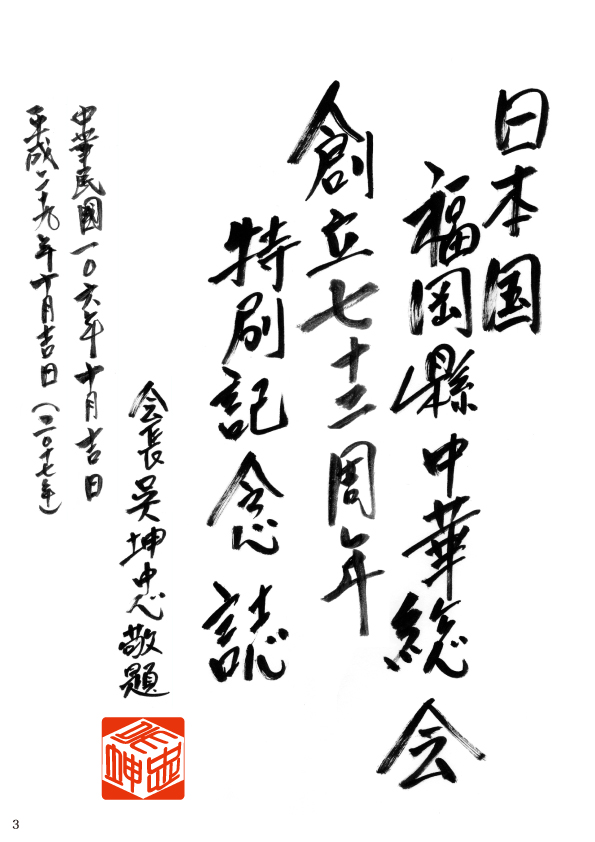 日本国
福岡縣中華総会
創立七十二周年
特刷記念誌
会長吴坤忠敬題
中華民國一〇六年十月吉日
平成二十九年十月吉日(二〇十七年)
吴坤忠
3